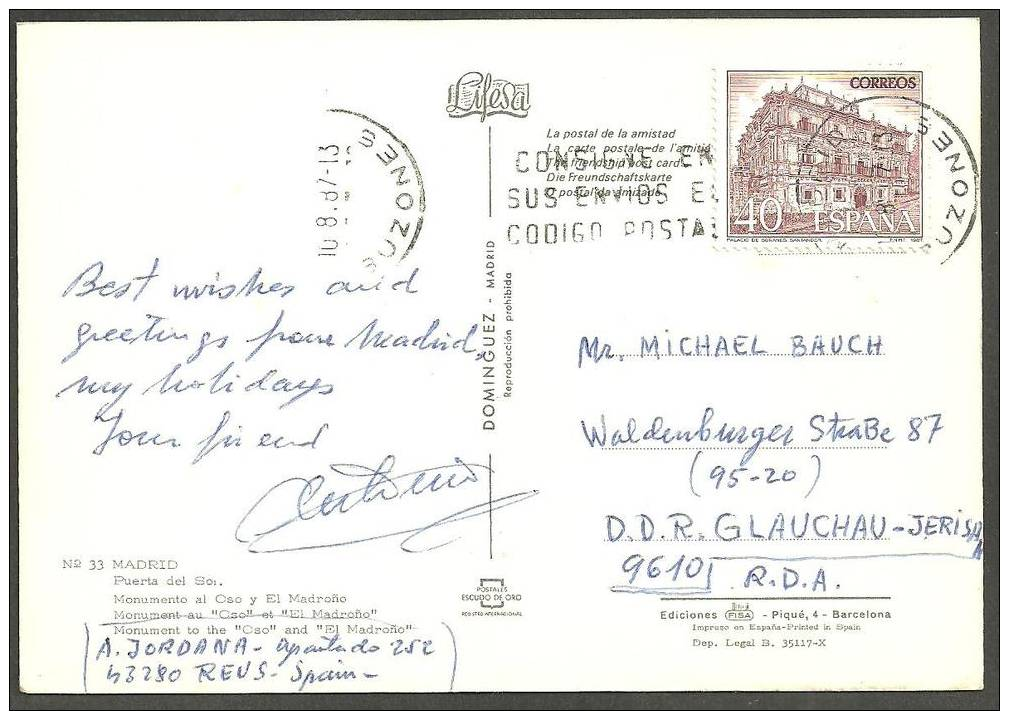 Lifesa
La postal de la amistad
La carte postale de l'amitié
The friendship post card
Die Freundschaftskarte
O postal da amizade
CONSIGNE EN
SUS ENVIOS EL
CODIGO POSTAL
BUZONES
10.8.87-13
CORREOS
40 ESPAÑA
PALACIO DE SOBANES. SANTANDER. F.N.M.T. 1987
BUZONES
Best wishes and
greetings from Madrid,
my holidays
Your friend
Antonio
DOMINGUEZ - MADRID
Reproducción prohibida
Mr. MICHAEL BAUCH
Waldenburger Straße 87
(95-20)
D.D.R. GLAUCHAU-JERISAU
9610
R.D.A.
Nº 33 MADRID
Puerta del Sol.
Monumento al Oso y El Madroño
Monument au "Oso" et "El Madroño"
Monument to the "Oso" and "El Madroño"
A. JORDANA - apartado 252
43280 REUS - Spain -
POSTALES
ESCUDO DE ORO
REGISTRO INTERNACIONAL
Ediciones FISA - Piqué, 4 - Barcelona
Impreso en España-Printed in Spain
Dep. Legal B. 35117-X